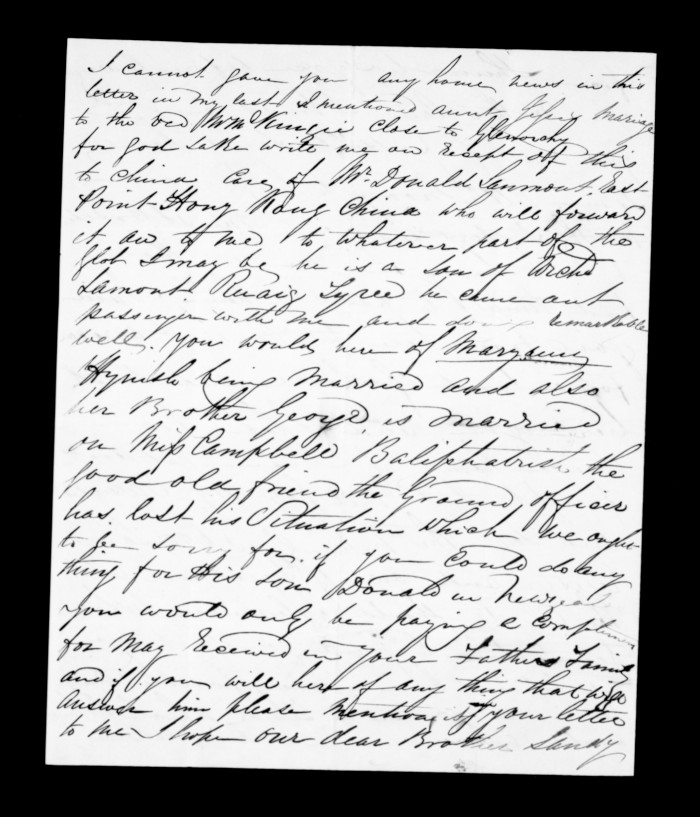 I cannot gave you any home news in this
letter in my last I mentioned aunt Mariage
to the old Mr McKingie close to Glenorchy
for god sake write me on recept off this
to china care of Mr Donald Lamont, East
Point Hong Kong China who will forward
it on to me to whatever part of the
glob I may be, he is a son of Archd
Lamont Ruaig Tyree he came out
passenger with me and doing remarkable
well. you would here of Maryann
Hynish being married and also
her Brother George, is married
on Miss Campbell Baliphatrish, the
good old friend the Ground officer
has lost his Situation which we ought
to be sorry for. if you could do any
thing for His son Donald in
you would only be paying a Complimen
for may received in your Fathers Family
and if you will here of any thing that will
answer him please mention it your letter
to me I hope our dear Brother Sandy